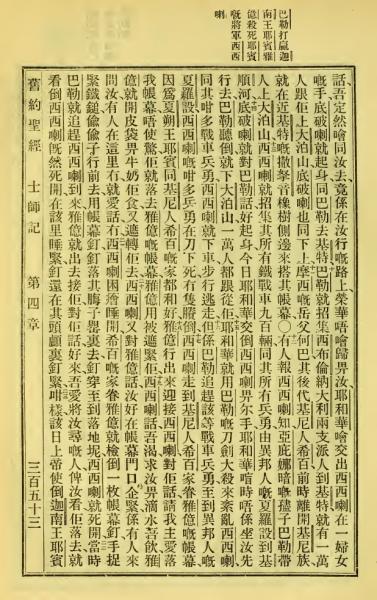 巴勒打贏迦
南王耶賓雅
億殺死耶賓
嘅將軍西西
喇
話吾定然噲同汝去竟係在汝行嘅路上榮華唔噲歸畀汝耶和華噲交出西西喇在一婦女
嘅手底破喇就起身同巴勒去基特巴勒就招集西布倫納大利兩支派人到基特就有一萬
人跟佢上大泊山底破喇也同下上摩西嘅岳父何巴其後代基尼人希百前時離開基尼族
就在近基特嘅撒拏音橡樹側邊來搭其帳幕〇有人報西西喇知亞庇嫩暗嘅孻子巴勒帶
人上大泊山西西喇就招集其所有鐵戰車九百輛同其所有兵勇由異邦人嘅夏羅設到基
順河底破喇就對巴勒話好起身今日耶和華交倒西西喇畀尔手耶和華時唔係坐汝先
行去巴勒聽倒就下大泊山一萬人都跟從佢耶和華就用巴勒嘅刀劍大殺來紊亂西西喇
同其咁多戰車兵勇西西喇也就下車步行逃走但係巴勒追趕該等戰車兵勇至到異邦人嘅
夏羅設西西喇嘅咁多兵勇在刀下死冇隻賸倒西西喇走到基尼人希百家眷雅億嘅帳幕
因爲夏朔王耶賓同基尼人希百嘅家都和好雅億行出來迎接西西喇對佢話請我主愛落
我帳幕唔使驚佢就去落雅億嘅帳幕雅億用被遮緊佢西西喇話吾渴求汝畀滴水吾飲雅
億就開皮袋畀牛奶佢食又遮轉佢去西西喇又對雅億話汝好在帳幕門口企緊係有人來
問汝有人在這里冇就愛話冇西西喇困睡開希百嘅家眷雅億就檢倒一枚帳幕釘手捉
緊鐵鎚偷偷子行前去用帳幕釘釘落其子裏去釘穿至到落地坭西西喇就死開當時
巴勒就追趕西西喇到來雅億就出去接佢對佢話好來吾愛將汝尋嘅人俾汝看佢落去就
看倒西西喇旣然死開在該里睡緊釘還在其頭顱裏釘緊咁樣該日上帝使倒迦南王耶賓
舊約聖經 士師記 第四章 三百五十三